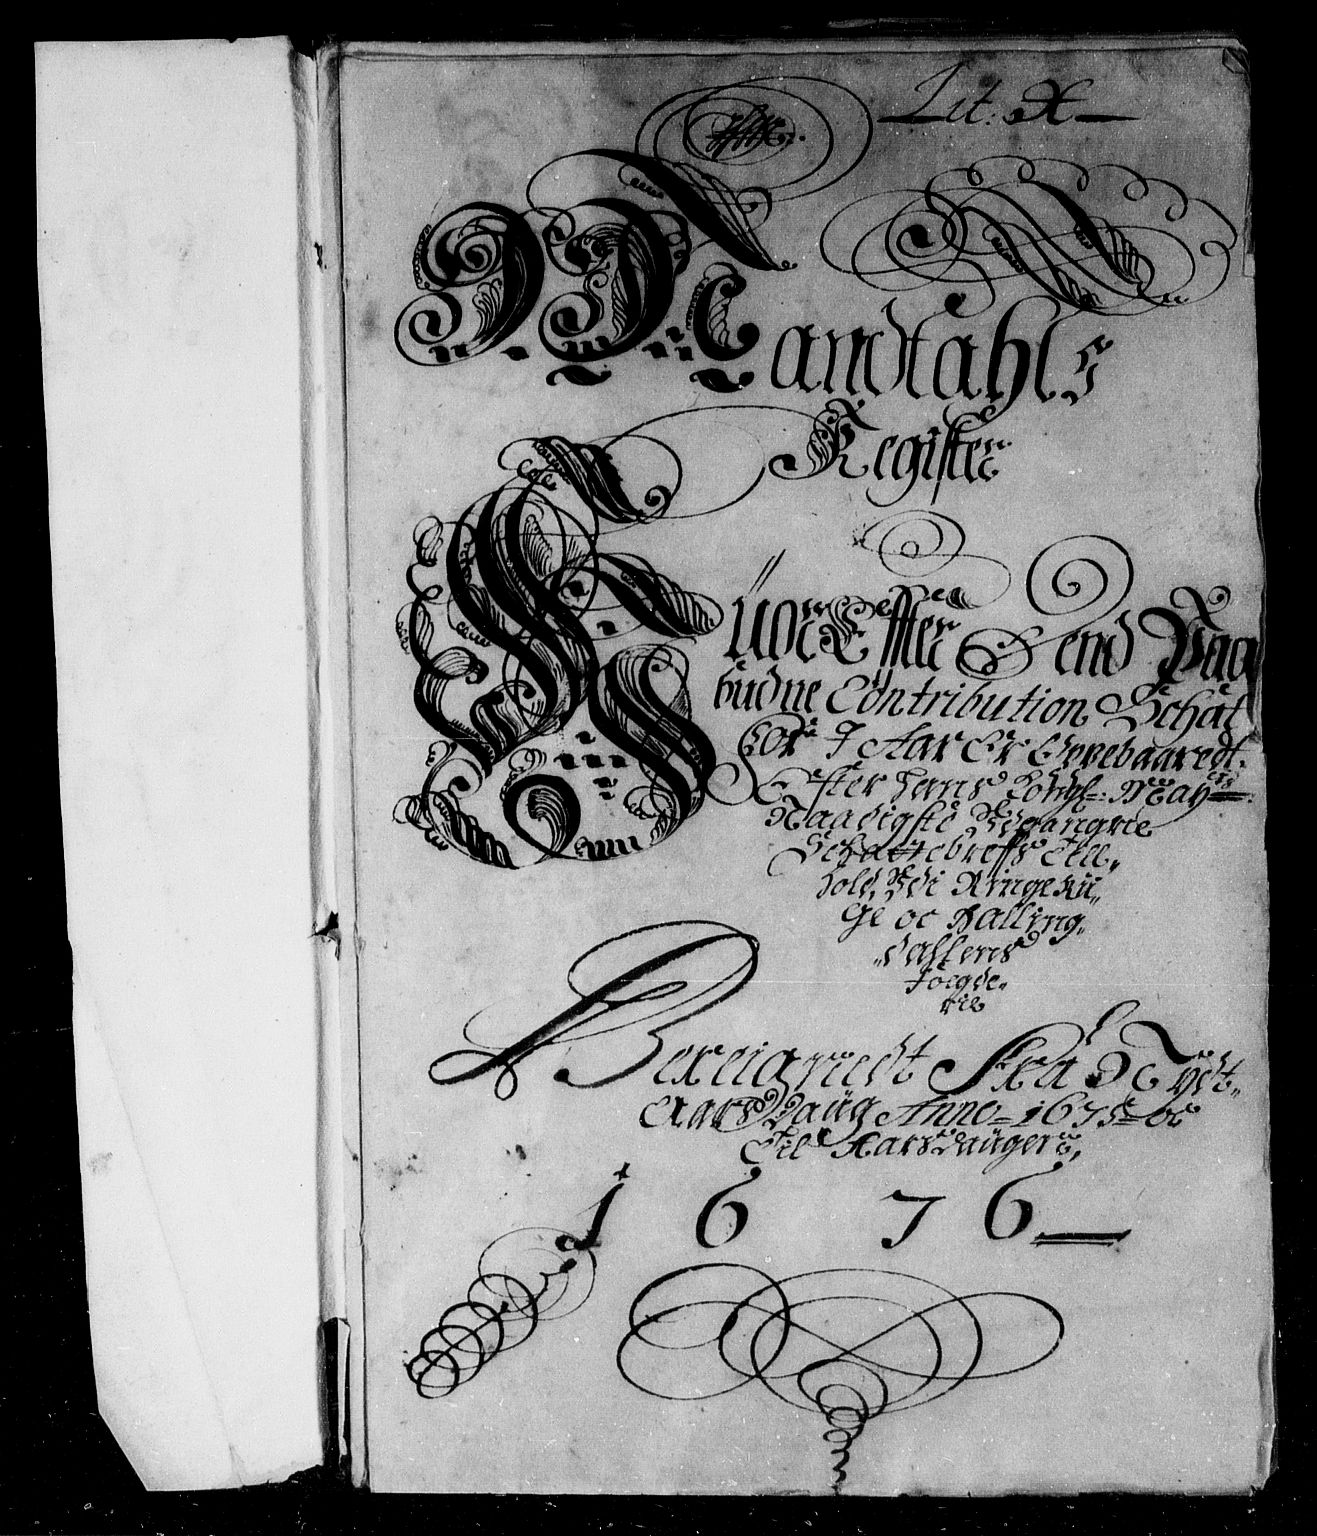 Lit: X
Mandtahls
Register
HuorEffter Dend Paa
budne Contribution Schat
For I Aar Er Oppebaaredt
Efter hans Kongl: May:ts
Naadigste Udgangne
Schattebreffs Till„
hold, Udi Ringerii„
ge oc Halling„
„dahlens
Foegde„
rie
Bereignedt Fra Nytt„
AarsDaug Anno 1675 oc
Til AarsDaugen,
1676